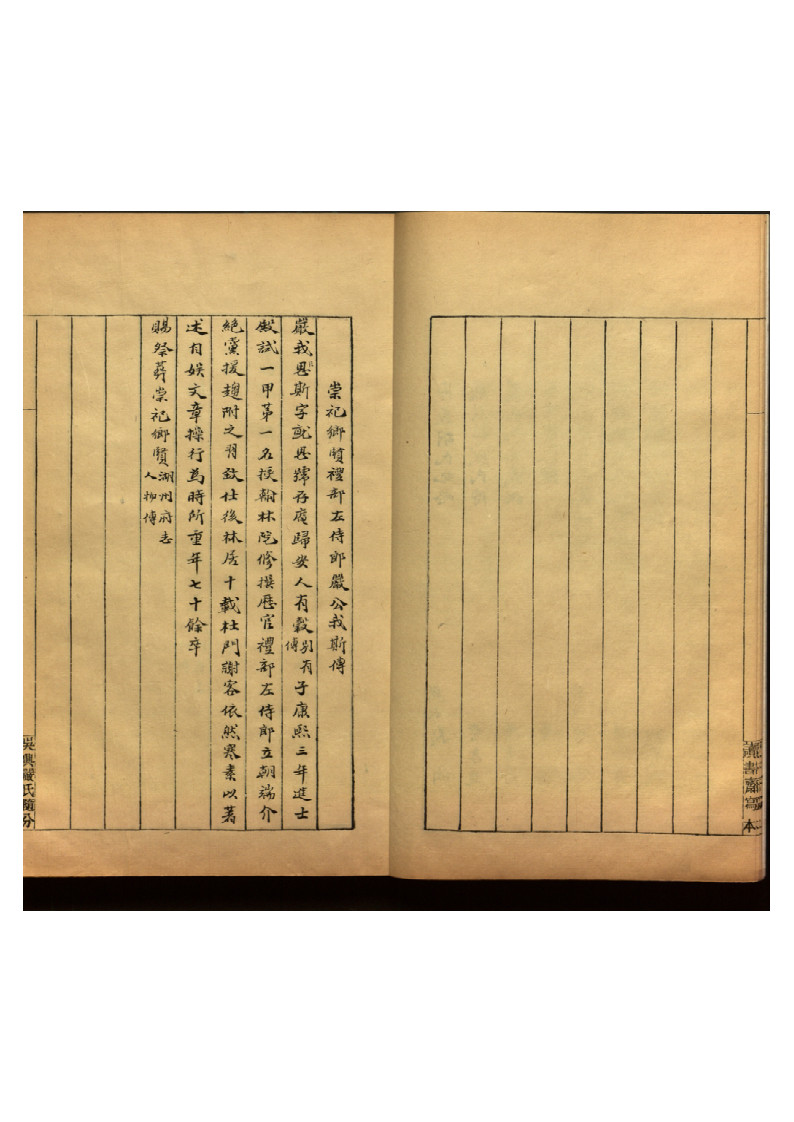 崇祀鄉賢禮部左侍郎嚴公我斯傳
嚴我思斯字就思號存庵歸安人有穀別有傳子康熙三年進士
殿試一甲第一名授翰林院修撰歷官禮部左侍郎立朝端介
絕黨援趨附之習致仕後林居十載杜門謝客依然寒素以著
述自娛文章操行為時所重年七十餘卒
賜祭葬崇祀鄉賢湖州府志人物傳
吳興嚴氏隨分
讀書齋寫本